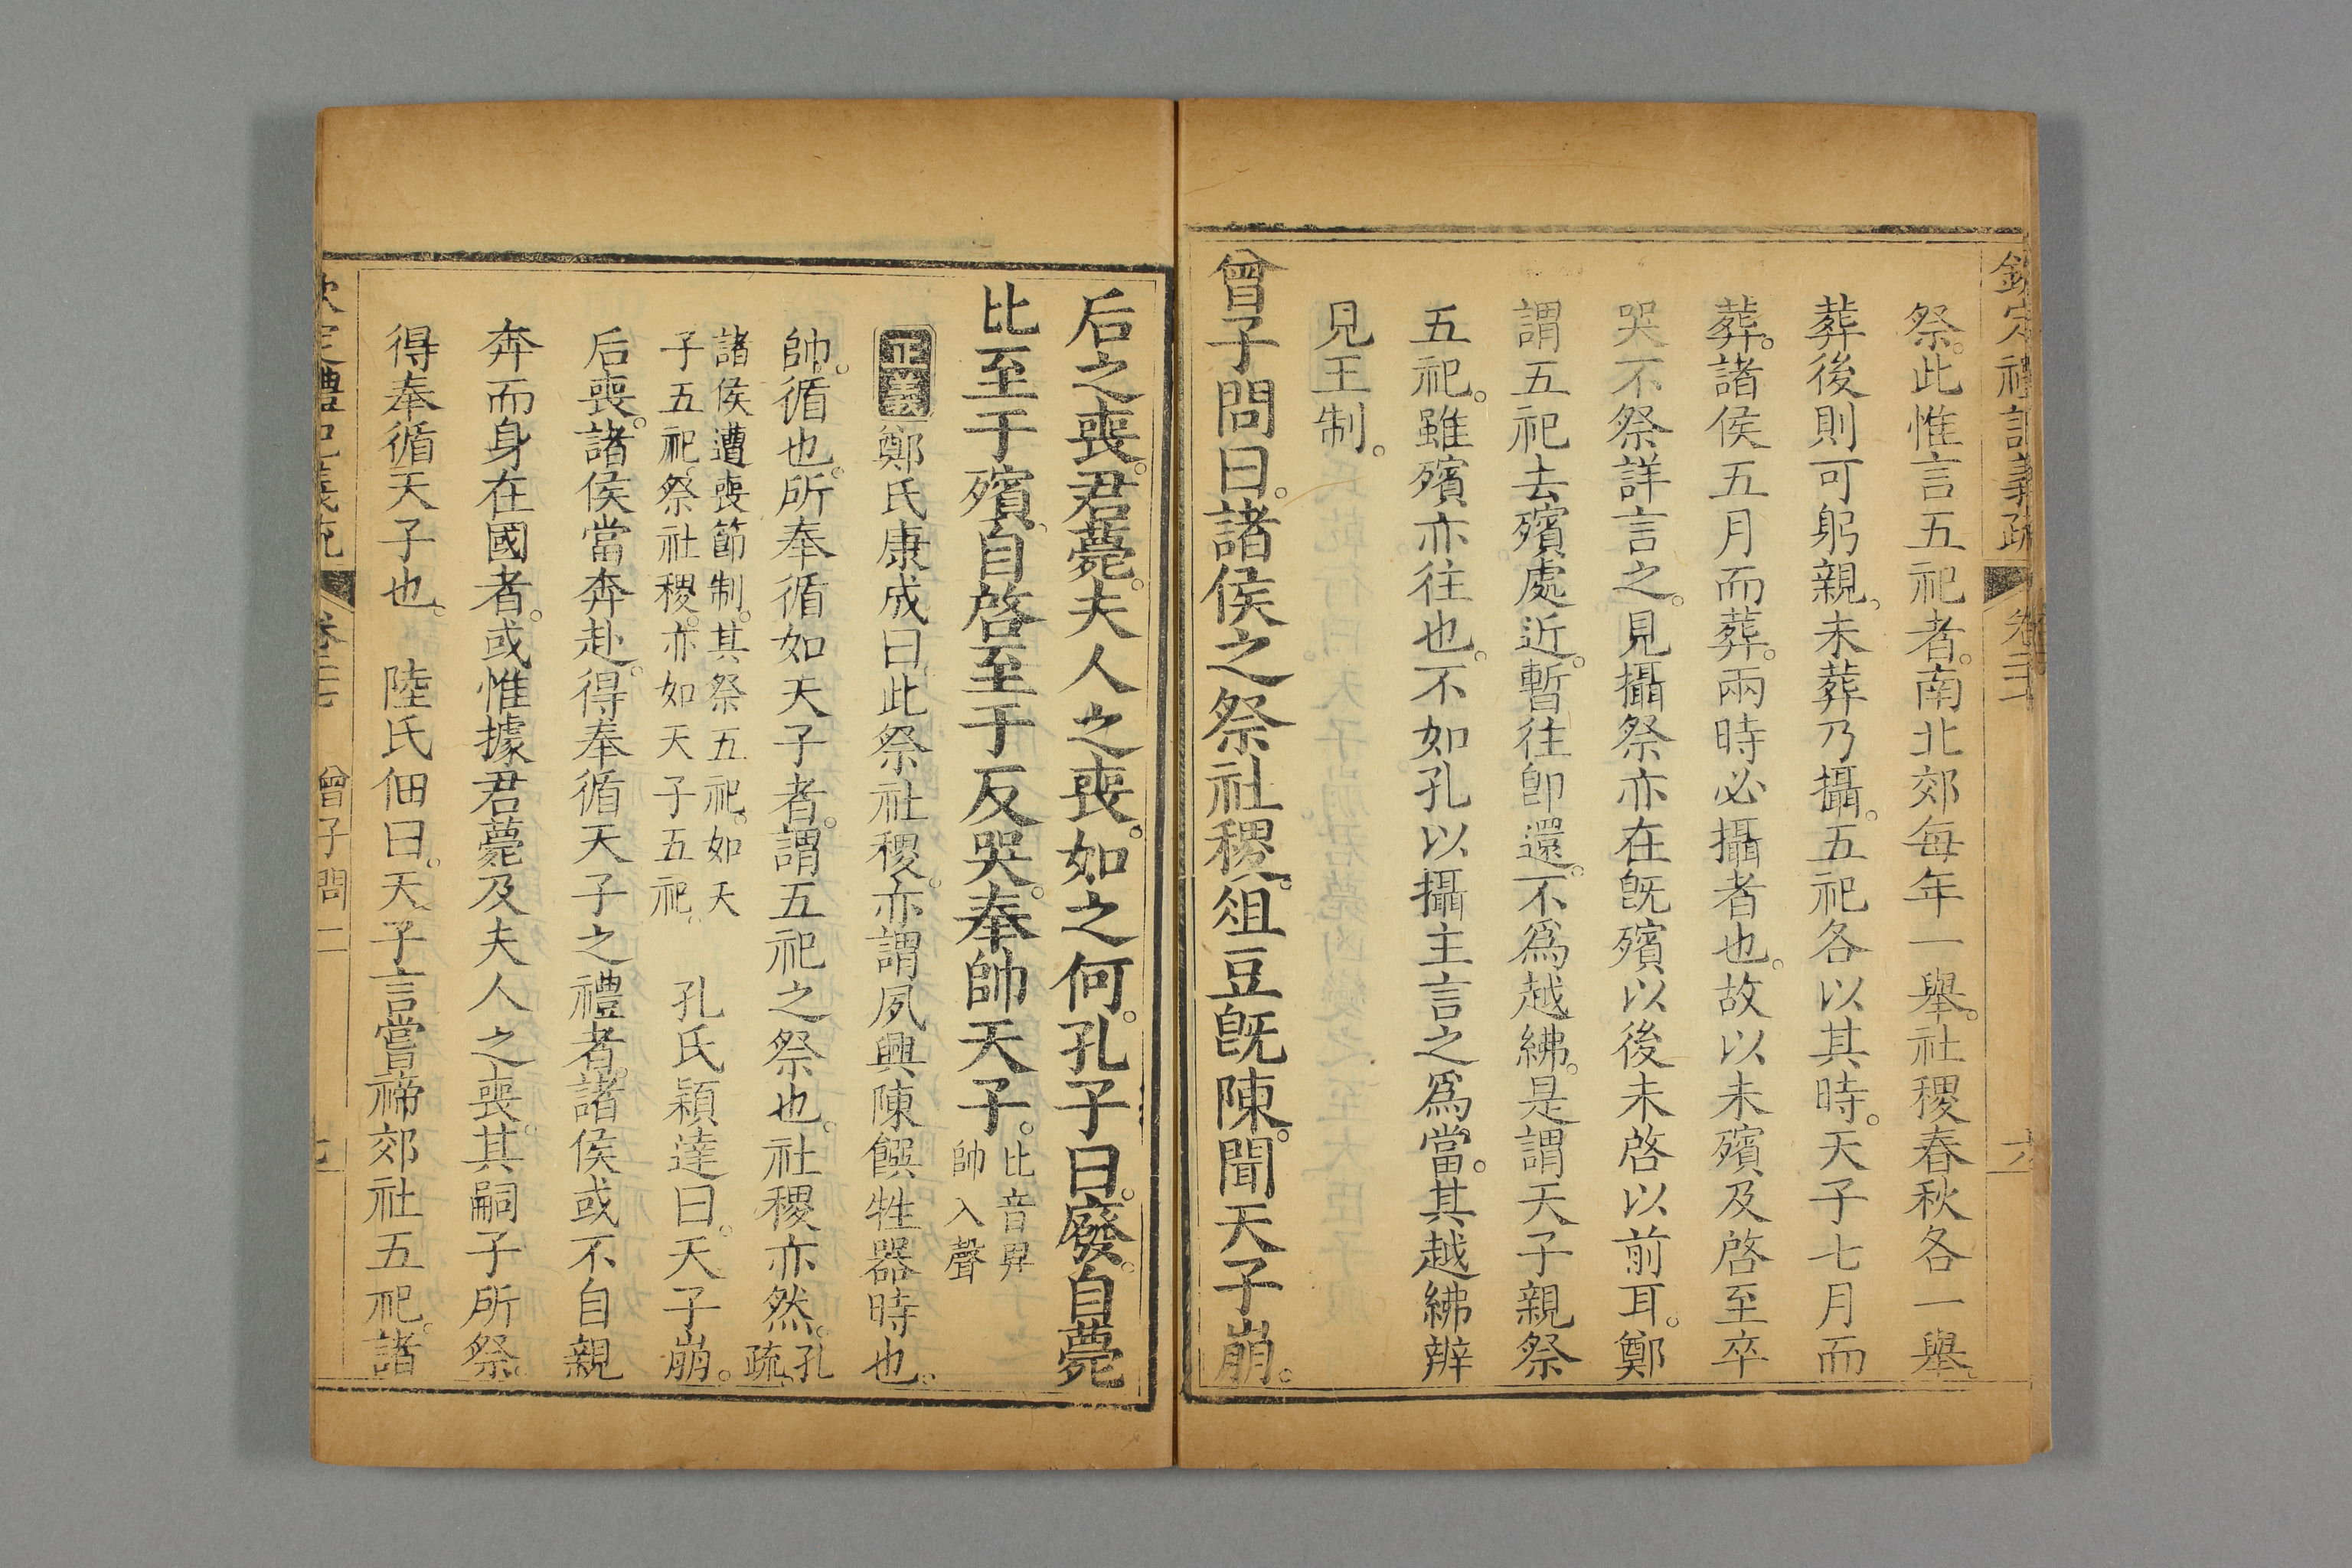 欽定禮記義疏 卷二十七 六
祭。此惟言五祀者。南北郊每年一舉。社稷春秋各一舉。
葬後則可躬親。未葬乃攝。五祀各以其時。天子七月而
葬。諸侯五月而葬。兩時必攝者也。故以未殯及啓至卒
哭不祭詳言之。見攝祭亦在旣殯以後未啓以前耳。鄭
謂五祀去殯處近。暫往卽還。不爲越紼。是謂天子親祭
五祀。雖殯亦往也。不如孔以攝主言之爲當。其越紼辨
見王制。
曾子問曰。諸侯之祭社稷。俎豆旣陳。聞天子崩。
后之喪。君薨。夫人之喪。如之何。孔子曰。廢。自薨
比至于殯。自啓至于反哭。奉帥天子。比音畀帥入聲
正義鄭氏康成曰此祭社稷。亦謂夙興陳饌牲器時也。
帥。循也。所奉循如天子者。謂五祀之祭也。社稷亦然。孔疏。
諸侯遭喪節制。其祭五祀。如天子五祀。祭社稷。亦如天子五祀。 孔氏穎達曰。天子崩。
后喪。諸侯當奔赴。得奉循天子之禮者。諸侯或不自親
奔而身在國者。或惟據君薨及夫人之喪。其嗣子所祭。
得奉循天子也。 陸氏佃曰。天子言嘗禘郊社五祀。諸
欽定禮記義疏 卷二十七 曾子問二 七